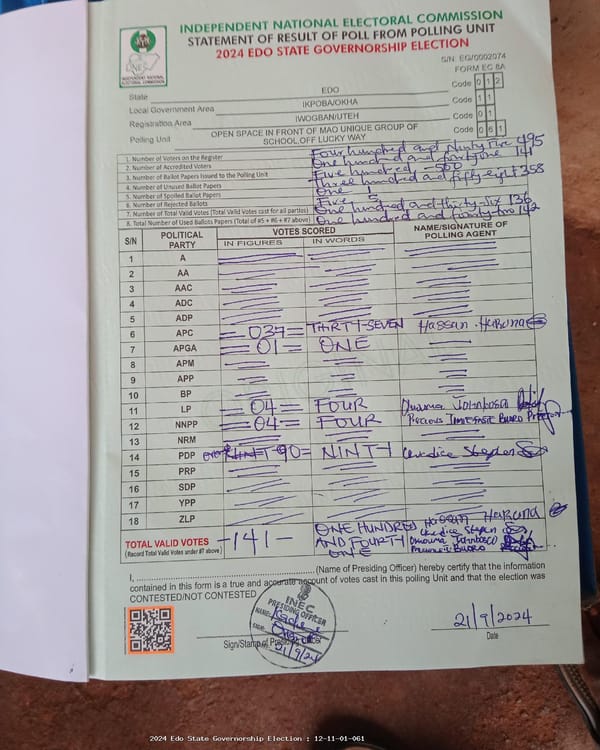 INDEPENDENT NATIONAL ELECTORAL COMMISSION
STATEMENT OF RESULT OF POLL FROM POLLING UNIT
2024 EDO STATE GOVERNORSHIP ELECTION
INDEPENDENT NATIONAL ELECTORAL COMMISSION
S/N: EG/0002074
FORM EC 8A
State EDO Code 0 1 2
Local Government Area IKPOBA/OKHA Code 1 1
Registration Area IWOGBAN/UTEH Code 0 1
Polling Unit OPEN SPACE IN FRONT OF MAO UNIQUE GROUP OF SCHOOL,OFF LUCKY WAY Code 0 6 1
1. Number of Voters on the Register Four hundred and Ninty five 495
2. Number of Accredited Voters One hundred and fourty one 141
3. Number of Ballot Papers Issued to the Polling Unit Five hundred 500
4. Number of Unused Ballot Papers Three hundred and fifty eight 358
5. Number of Spoiled Ballot Papers One 1
6. Number of Rejected Ballots Five 5
7. Number of Total Valid Votes (Total Valid Votes cast for all parties) One hundred and thirty-six 136
8. Total Number of Used Ballots Papers (Total of #5 + #6 + #7 above) One hundred and fourty two 142
S/N POLITICAL PARTY VOTES SCORED NAME/SIGNATURE OF POLLING AGENT
IN FIGURES IN WORDS
1 A
2 AA
3 AAC
4 ADC
5 ADP
6 APC 037 THIRTY-SEVEN Hassan
7 APGA 01 ONE
8 APM
9 APP
10 BP
11 LP 04 FOUR
12 NNPP 04 FOUR Precious
13 NRM
14 PDP 90 NINTY
15 PRP
16 SDP
17 YPP
18 ZLP
TOTAL VALID VOTES -141- ONE HUNDRED AND FOURTY ONE
(Record Total Valid Votes under #7 above)
I, (Name of Presiding Officer) hereby certify that the information
contained in this form is a true and accurate account of votes cast in this polling Unit and that the election was
CONTESTED/NOT CONTESTED
INEC
PRESIDING OFFICER
NAME:
SIGN:
21/9/24
Sign/Stamp of
21/9/2024
Date
2024 Edo State Governorship Election : 12-11-01-061